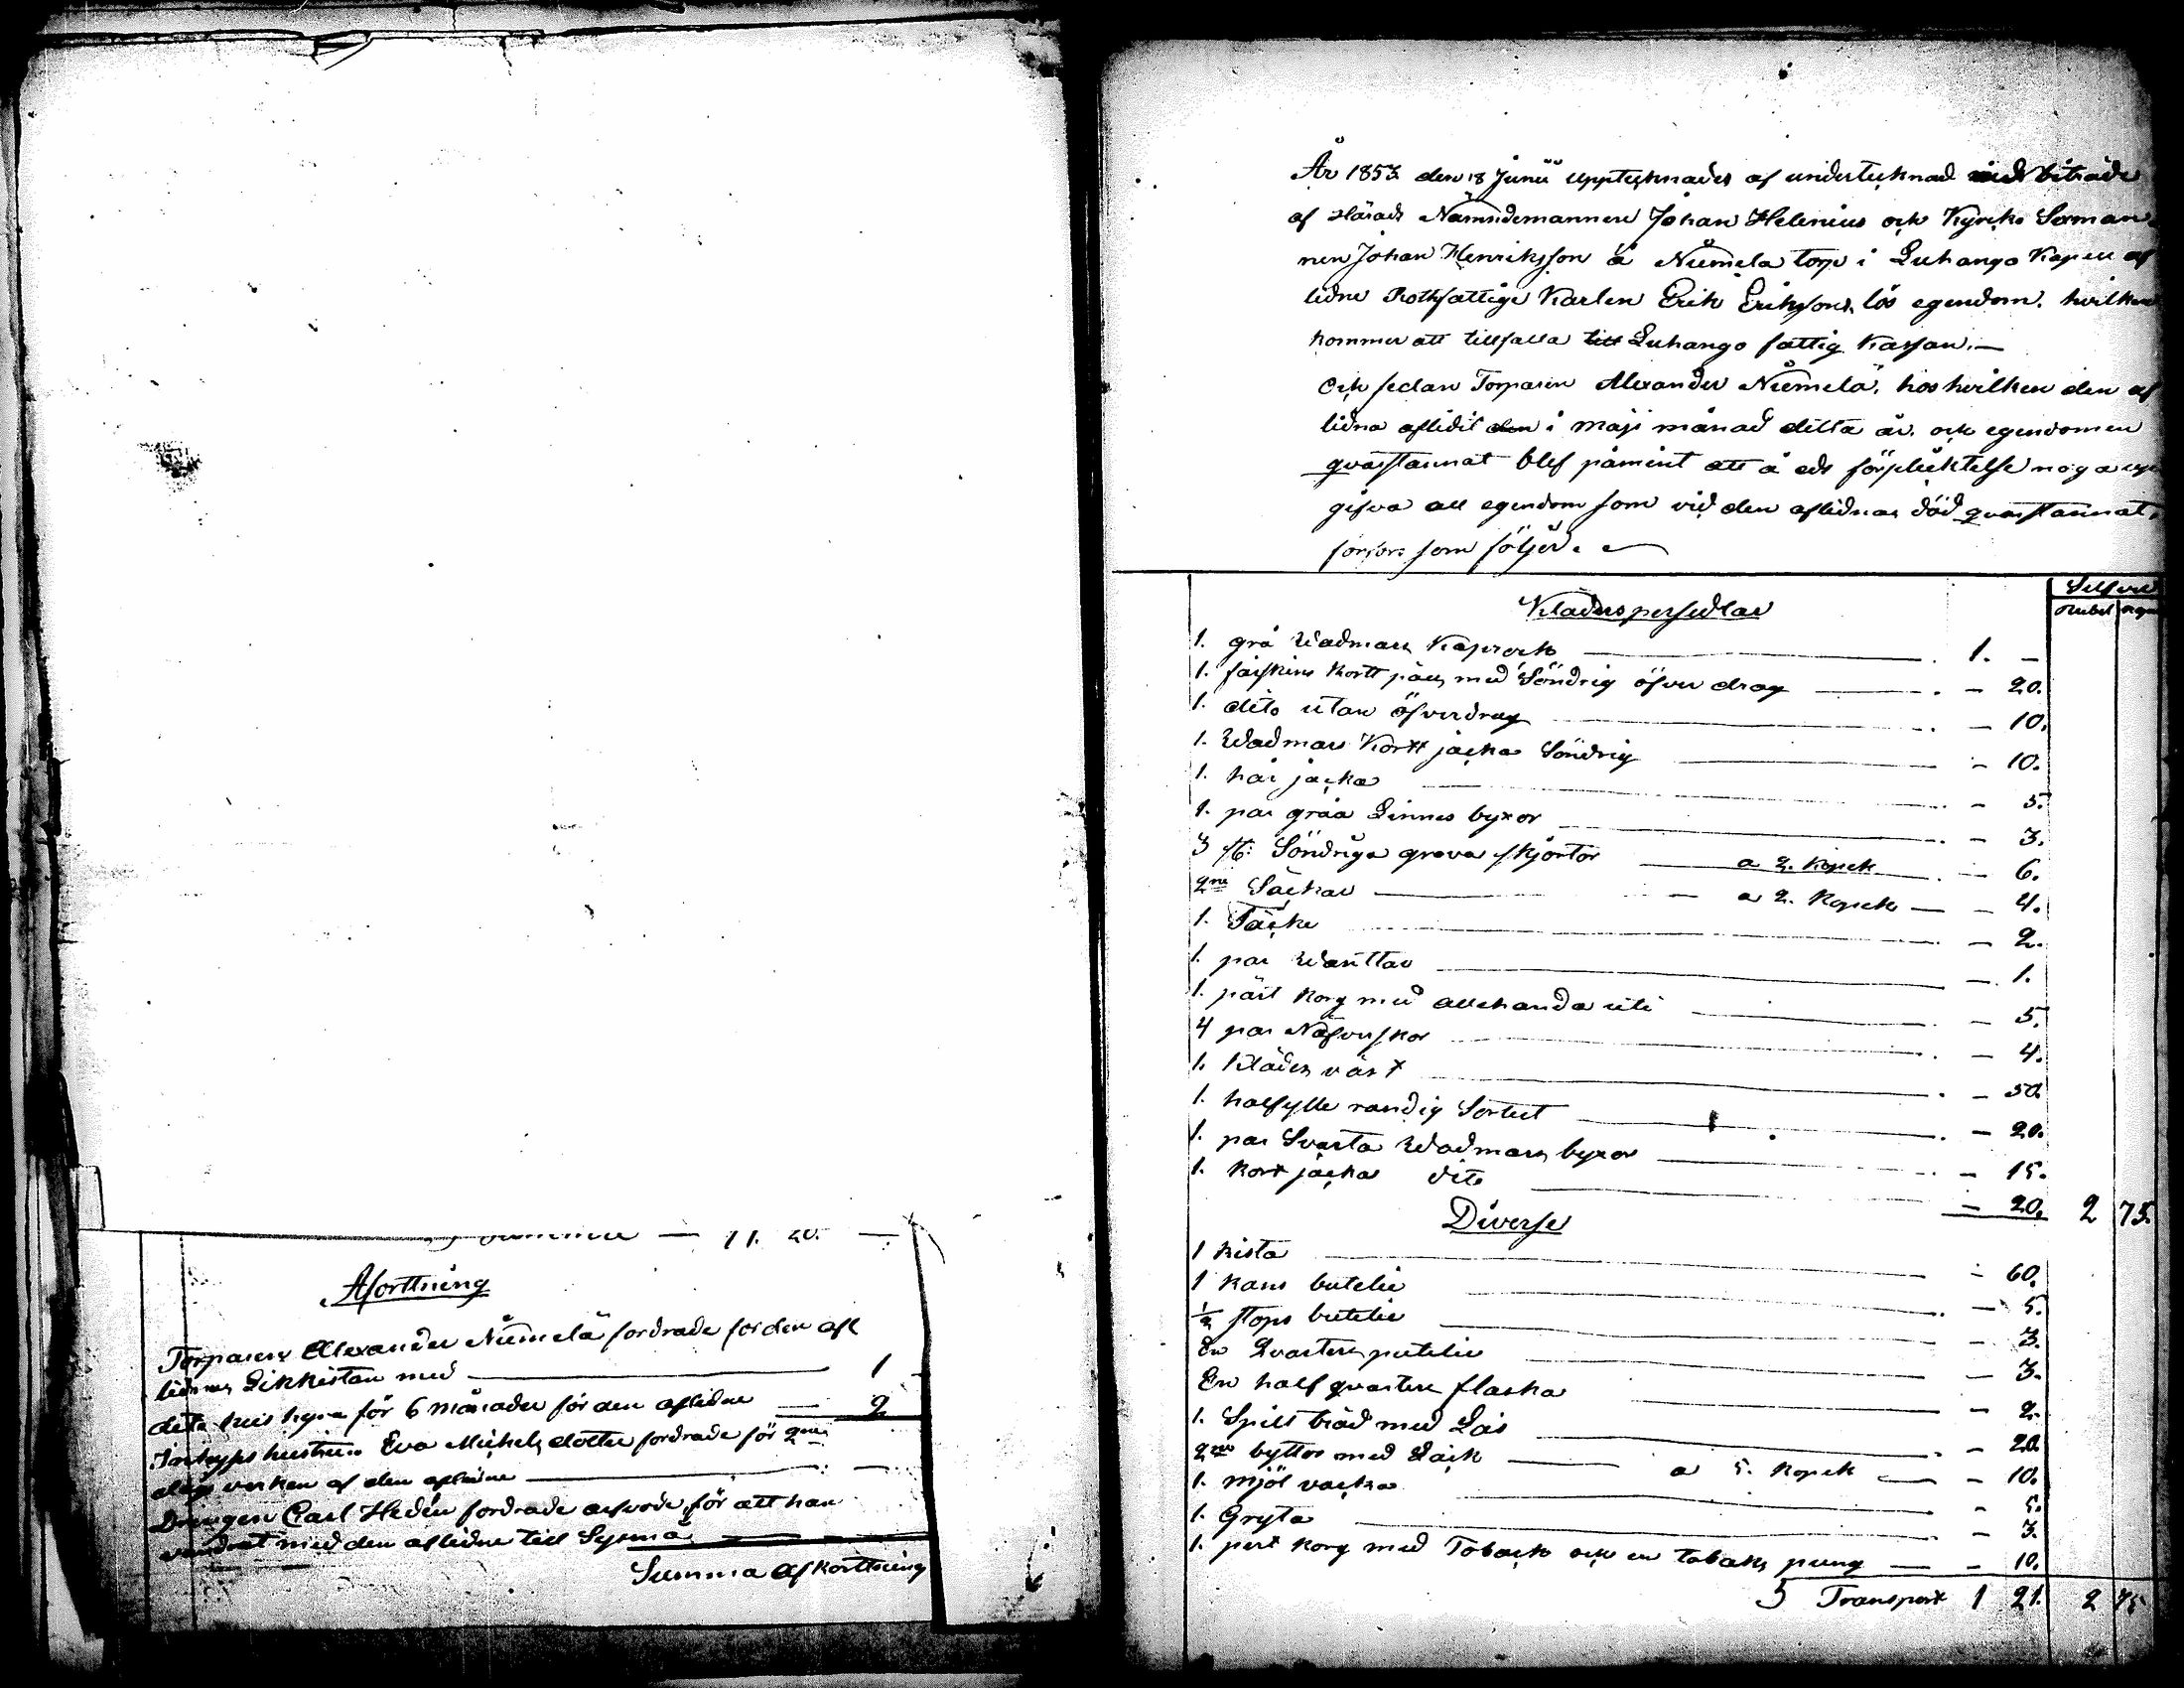 Summa — 11. 20. —
Afkorttning
Torparen Alexander Niemelä fordrade för den afl
lidnes Likkistan med — 1
dito hus hyra för 6 månader för den aflidne — 2
Inhyses hustrun Eva Michels dotter fordrade för 2ne
dags verken af den aflidne —
Drängen Carl Hedén fordrade arfvode för att han
vandrat med den aflidne till Sysmä — — —
Summa Afkorttning
År 1853 den 18 Junii upptecknades af undertecknad med biträde
af Härads Nämndemannen Johan Helenius och Kyrcko Sexman
nen Johan Henriksson å Niemelä torp i Luhango Kapell af
lidne Rothfattige Karlen Erik Erikssons lös egendom, hvilken
kommer att tillfalla till Luhango fattig Kassan.—
Och sedan Torparen Alexander Niemelä, hos hvilken den af
lidna aflidit den i Maji månad detta år, och egendomen
qvarstannat blef påmint att å eds förplicktelse noga upp
gifva all egendom som vid den aflidnas död qvarstannat,
förfors som följer.
Silfver
Rubel Kopek
Kläderspersedlar
1. grå Wadmars Kaprock — 1. —
1. fårskins Kortt päls med Söndrig öfver drag — — 20.
1. dito utan öfverdrag — — 10.
1. Wadmars Kortt jacka Söndrig — — 10.
1. hår jacka — — 5.
1. par gråa Linnes byxor — — 3.
3 st: Söndriga grova skjortor — a 2. Kopek — 6.
2ne Säckar — a 2. Kopek — — 4.
1. Täcke — — 2.
1. par Wanttar — — 1.
1. pärt Korg med allehanda uti — — 5.
4 par Näfverskor — — 4.
1. Klädes väst — — 50.
1. halfylle randig Sortut — — 20.
1. par Svarta Wadmars byxor — — 15.
1. Kort jacka dito — — 20. 2 75.
Diverse
1 Kista — — 60.
1 Kans butelie — — 5.
½ stops butelie — — 3.
En Qvarters putelie — — 3.
En half qvarters flaska — — 2.
1. Spilt bräd med Lås — — 20.
2ne byttor med Läck — a 5. Kopek — — 10.
1. Mjöl vacka — — 5.
1. Gryta — — 3.
1. pert Korg med Toback och en tobaks pung — — 10.
Transport 1 21. 2 75